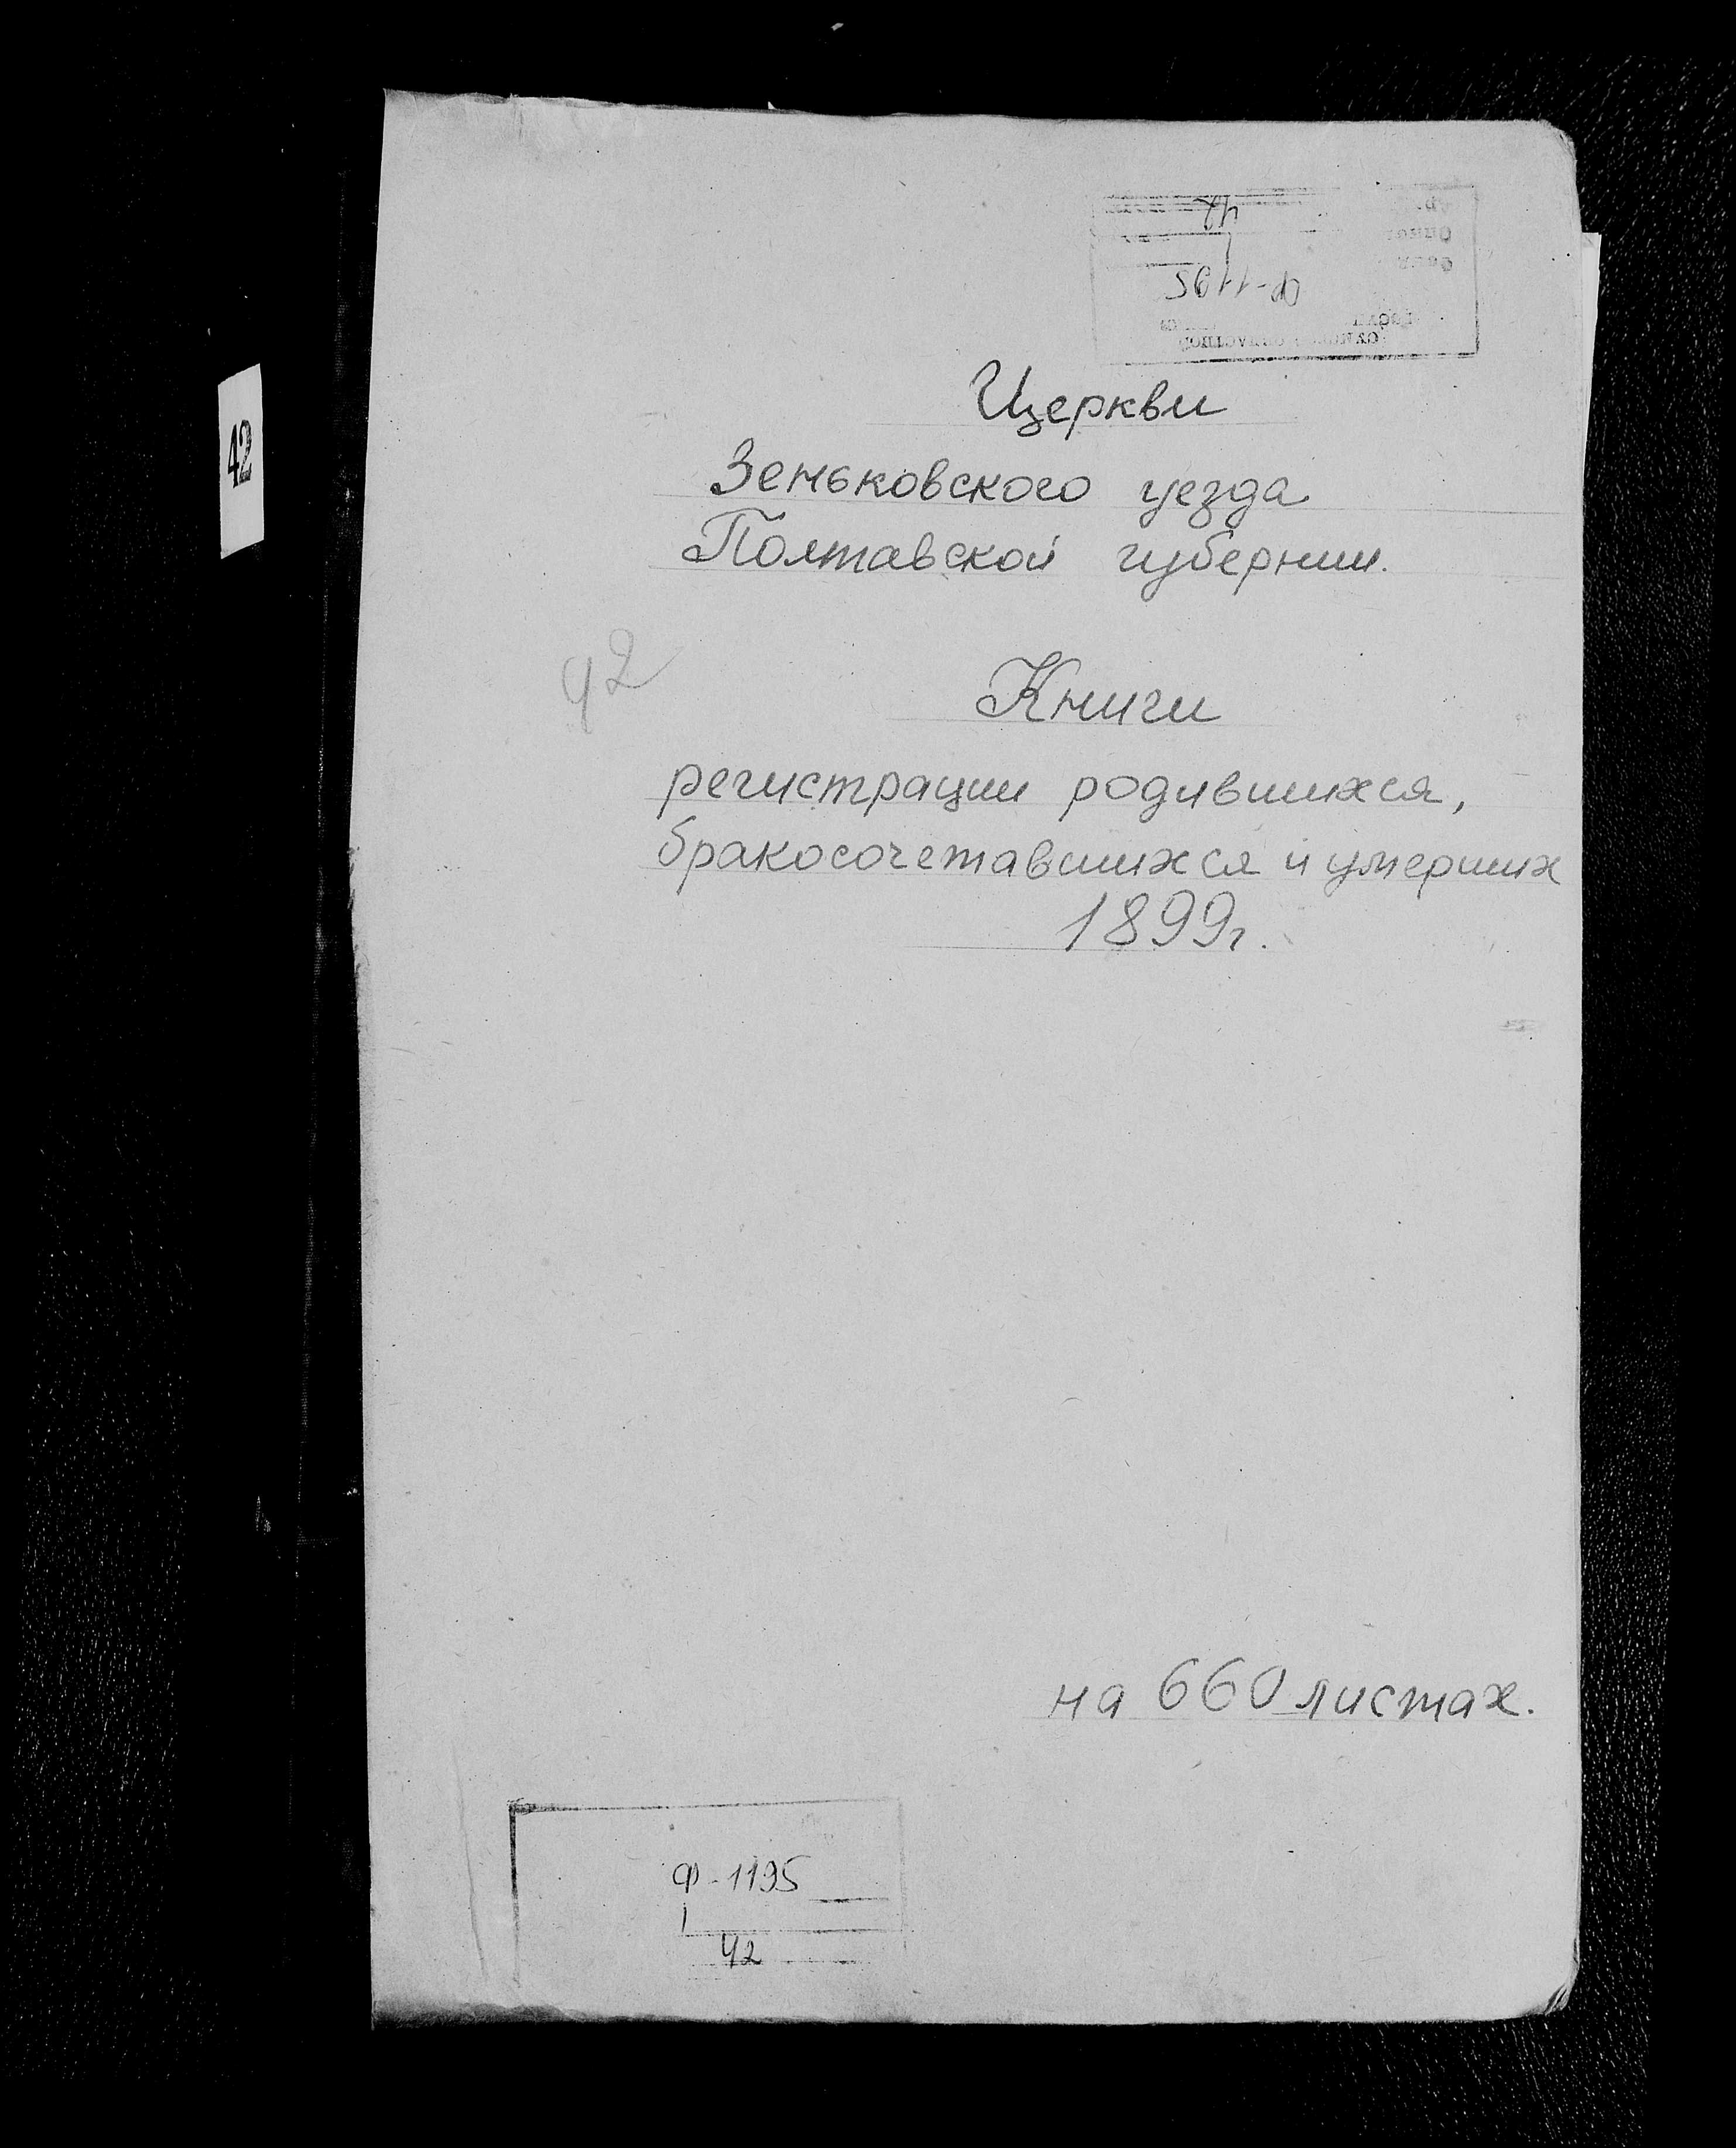 42
42
Ф-1195
Церкви
Зеньковского уезда
Полтавской губернии.
42
Книги
регистрации родившихся,
бракосочетавшихся и умерших
1899г.
на 660 листах.
Ф-1195
1
42